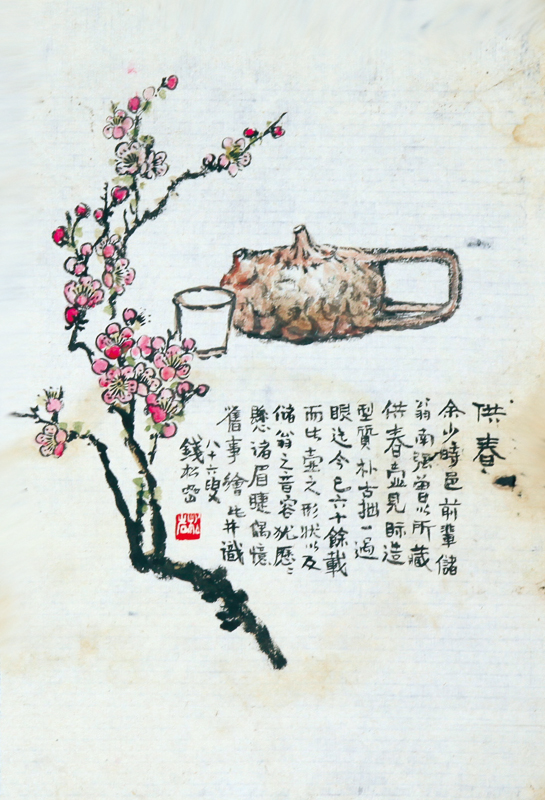 供春
余少時邑前輩儲
翁南强曾以所藏
供春壺見眎造
型質朴古拙一過
眼迄今已六十餘載
而此壺之形狀以及
儲翁之音容犹歷〻
懸諸眉睫偶憶
舊事繪此并識
八十六叟
錢松喦